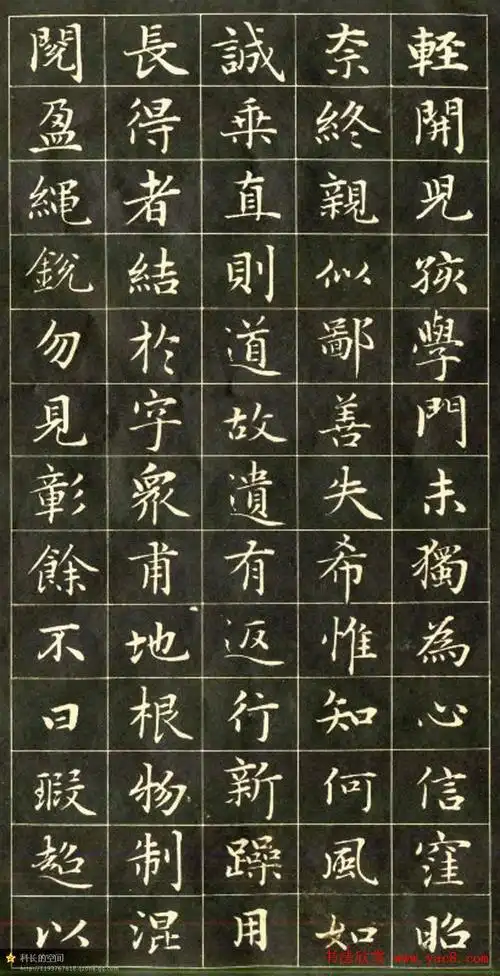 輕開兒孩學門未獨為心信窪昭
奈終親似鄙善失希惟知何風如
誠乘直則道故遺有返行新躁用
長得者結於字衆甫地根物制混
閱盈繩銳勿見彰餘不曰瑕超以
科长的空间
书法欣赏 www.yac8.com